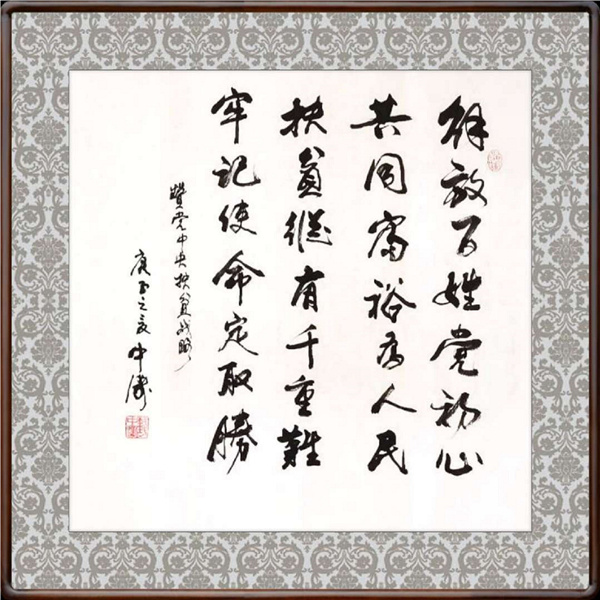 解放百姓党初心
共同富裕为人民
扶贫纵有千重難
牢记使命定取勝
赞党中央扶贫战略
庚子之夏 中